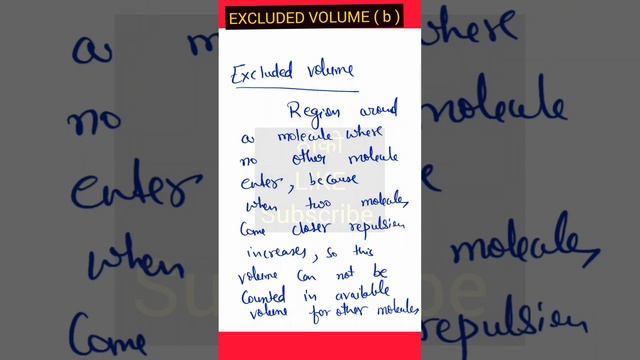 EXCLUDED VOLUME ( b )
Excluded volume
Region around
a molecule where
no other molecule
enter, because
when two molecules
Come closer repulsion
increases, so this
volume can not be
Counted in available
volume for other molecules
LIKE
Subscribe